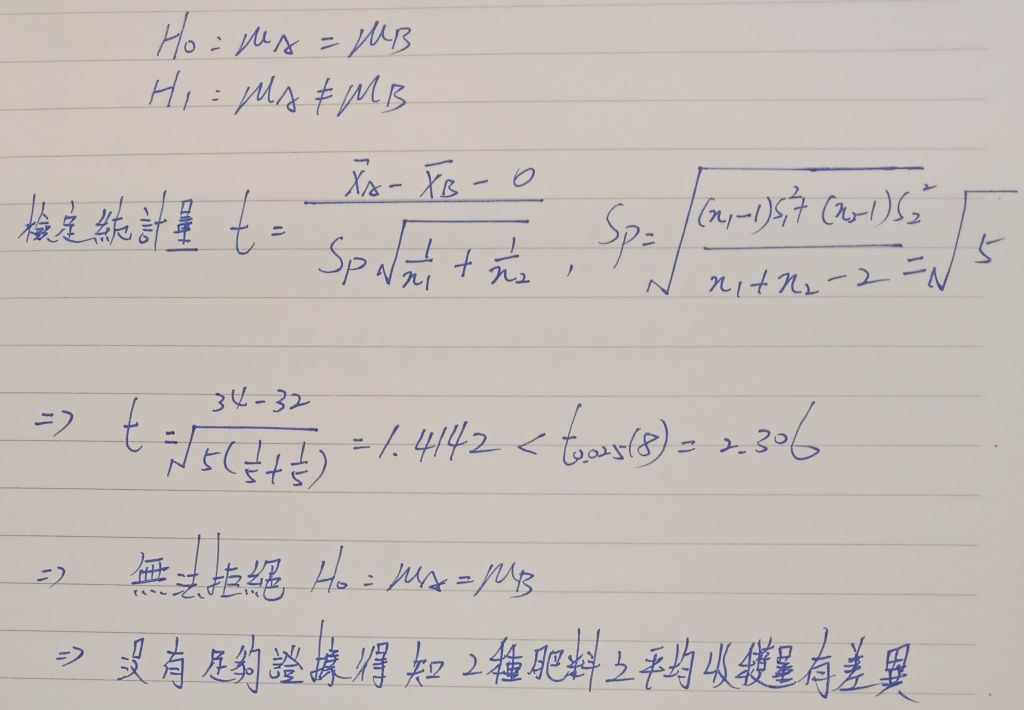 H₀ : μA = μB
H₁ : μA ≠ μB
檢定統計量 t = (X̄A - X̄B - 0) / (Sp√(1/n₁ + 1/n₂)) , Sp = √(((n₁-1)S₁² + (n₂-1)S₂²) / (n₁+n₂-2)) = √5
=> t = (34-32) / √(5(1/5+1/5)) = 1.4142 < t0.025(8) = 2.306
=> 無法拒絕 H₀ : μA = μB
=> 沒有足夠證據得知2種肥料之平均收穫量有差異